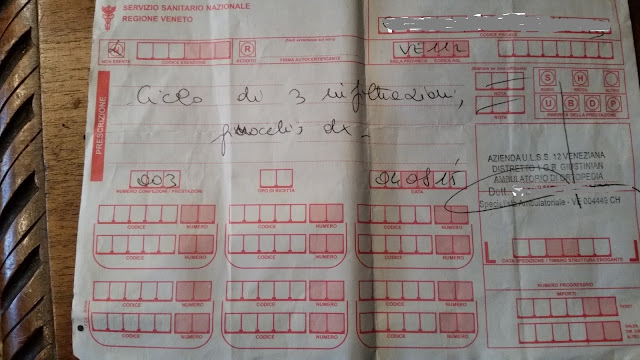 SERVIZIO SANITARIO NAZIONALE
REGIONE VENETO
CODICE FISCALE
NON ESENTE
CODICE ESENZIONE
R
REDDITO
FIRMA AUTOCERTIFICANTE
VE 112
SIGLA PROVINCIA
CODICE ASL
PRESCRIZIONE
Ciclo di 3 infiltrazioni,
ginocchio dx -
NOTA
S
H
NOTA
U
B
D
P
PRIORITÀ PRESTAZIONE
003
NUMERO CONFEZIONI / PRESTAZIONI
TIPO DI RICETTA
DATA
AZIENDA U.L.S.S. 12 VENEZIANA
DISTRETTO 1 O.R. GIUSTINIAN
AMBULATORIO DI ORTOPEDIA
Dott.
Specialista Ambulatoriale - VE 004449 CH
CODICE NUMERO CODICE NUMERO CODICE NUMERO
CODICE NUMERO CODICE NUMERO CODICE NUMERO
DATA SPEDIZIONE / TIMBRO STRUTTURA EROGANTE
CODICE NUMERO CODICE NUMERO CODICE NUMERO
CODICE NUMERO CODICE NUMERO CODICE NUMERO
NUMERO PROGRESSIVO
IMPORTI
TICKET